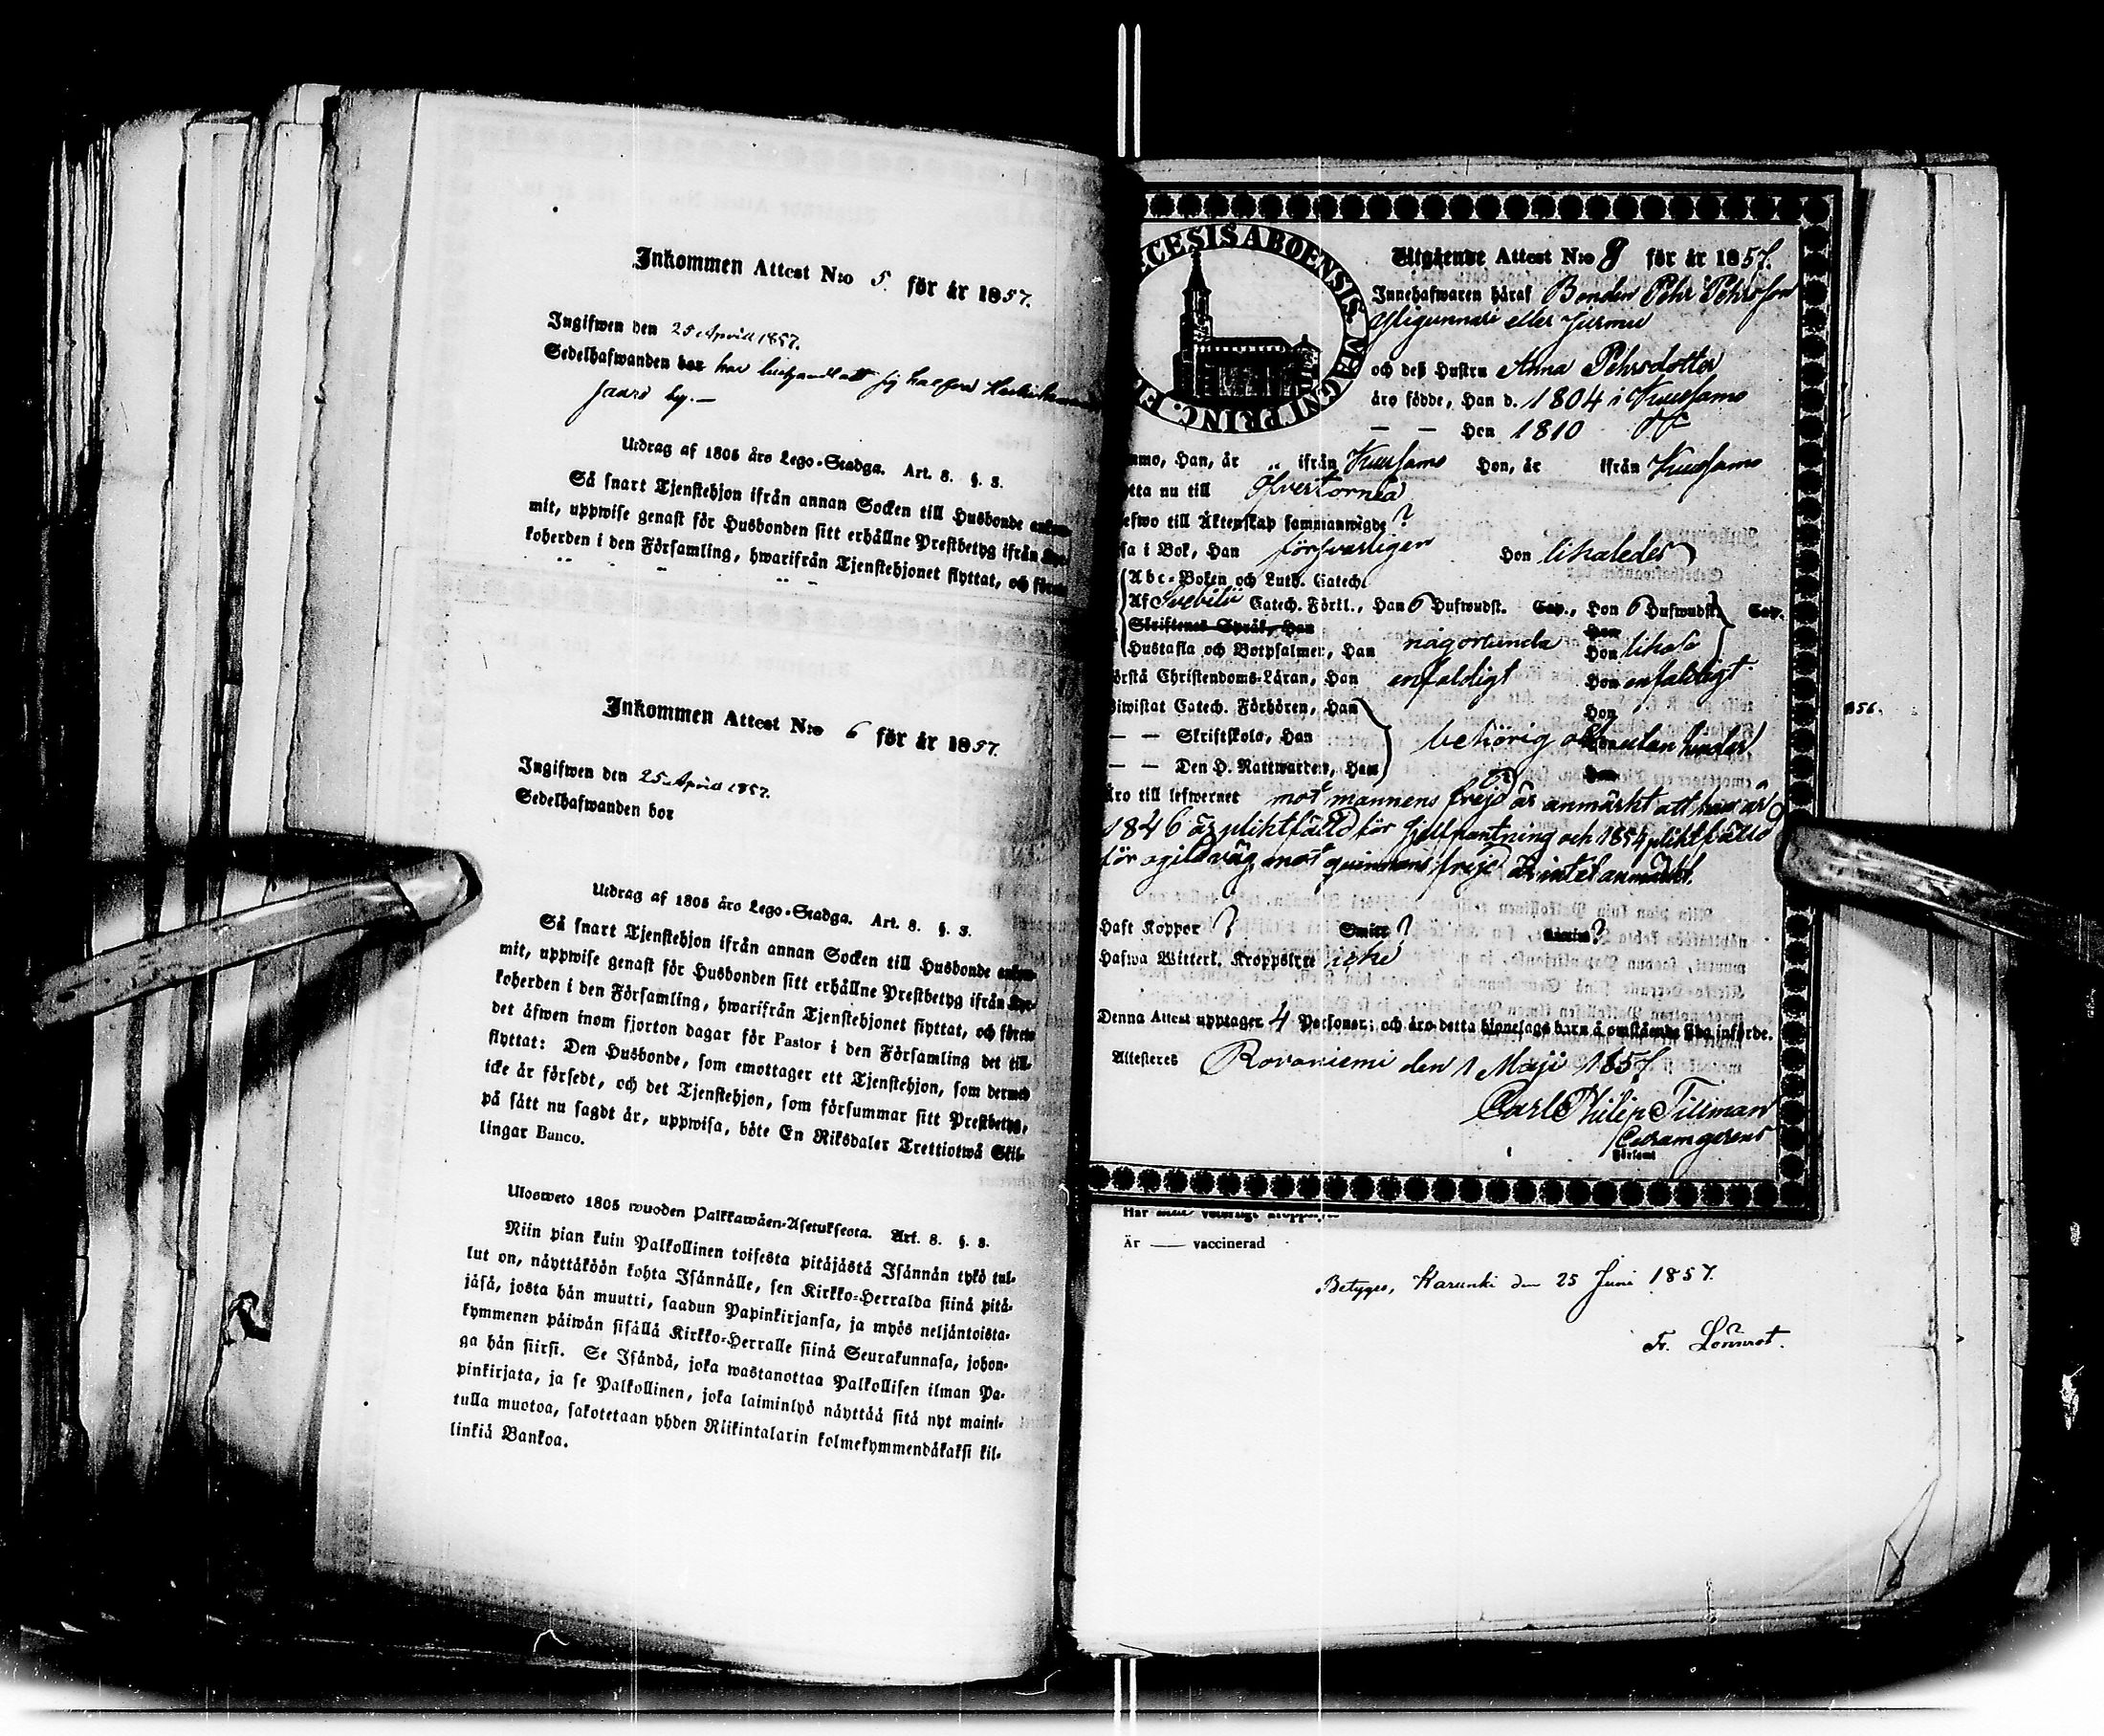 Inkommen Attest N:o 5. för år 1857.
Ingifwen den 25 April 1857.
Sedelhafwanden bor har
by.—
Utdrag af 1805 års Lego-Stadga. Art. 8. §. 3.
Så snart Tjenstehjon ifrån annan Socken till Husbonde
mit, uppwise genast för Husbonden sitt erhållne Prestbetyg ifrån
koherden i den Församling, hwarifrån Tjenstehjonet flyttat, och
Inkommen Attest N:o 6 för år 1857.
Ingifwen den 25 April 1857.
Sedelhafwanden bor
Utdrag af 1805 års Lego-Stadga. Art. 8. §. 3.
Så snart Tjenstehjon ifrån annan Socken till Husbonde ankom-
mit, uppwise genast för Husbonden sitt erhållne Prestbetyg ifrån Kyr-
koherden i den Församling, hwarifrån Tjenstehjonet flyttat, och förete
det äfwen inom fjorton dagar för Pastor i den Församling det till-
flyttat: Den Husbonde, som emottager ett Tjenstehjon, som dermed
icke är försedt, och det Tjenstehjon, som försummar sitt Prestbetyg,
på sätt nu sagdt är, uppwisa, böte En Riksdaler Trettiotwå Skil-
lingar Banco.
Ulosweto 1805 wuoden Palkkawäen-Asetuksesta. Art. 8. §. 3.
Niin pian kuin Palkollinen toisesta pitäjästä Isännän tykö tul-
lut on, näyttäköön kohta Isännälle, sen Kirkko-Herralda siinä pitä-
jäsä, josta hän muutti, saadun Papinkirjansa, ja myös neljäntoista-
kymmenen päiwän sisällä Kirkko-Herralle siinä Seurakunnasa, johon-
ga hän siirsi. Se Isändä, joka wastanottaa Palkollisen ilman Pa-
pinkirjata, ja se Palkollinen, joka laiminlyö näyttää sitä nyt maini-
tulla muotoa, sakotetaan yhden Riikintalarin kolmekymmendäkaksi kil-
linkiä Bankoa.
CESIS ABOENSIS.
PRINC.
Utgående Attest N:o 8 för år 1857.
Innehafwaren häraf Bonden Pehr Pehrsson
eller Jurmu
och deß Hustru Anna Pehrsdotter
äro födde, Han d. 1804 i Kuusamo
— — Hon 1810
Han, år " ifrån Kuusamo Hon, år ifrån Kuusamo
nu till Öfvertorneå
till Äktenskap sammanwigde ?
i Bok, Han försvarligen Hon likaledes
Abc-Boken och Luth. Catech.
Af Svebilii Catech. Förkl., Han 6 Hufwudst. Cap., Hon 6 Hufwudst. Cap.
Skriftenes Språk, Han Hon
Hustafla och Botpsalmer, Han någorlunda Hon
Christendoms-Läran, Han enfaldigt Hon enfaldigt
Catech. Förhören, Han Hon
— — Skriftskola, Han behörig och utan hinder
— — Den H. Nattwarden, Han Hon
äro till lefwernet mot mannens frejd är anmärkt att han år
1846 är pliktfälld för sjelfpantning och 1854 pliktfälld
för ogild väg, mot quinnans frejd är intet anmärkt.
Haft Koppor ? ? ?
Hafwa Witterl. Kroppslyte icke
Denna Attest upptager 4 Personer; och äro detta hjonelags barn å omstående sida införde.
Attesteres Rovaniemi den 1 Maji 1857.
Carl Philip Tillman
Curam gerens
856.
Är —— vaccinerad
Betyges, Karunki den 25 Juni 1857.
Fr. Lönnrot.